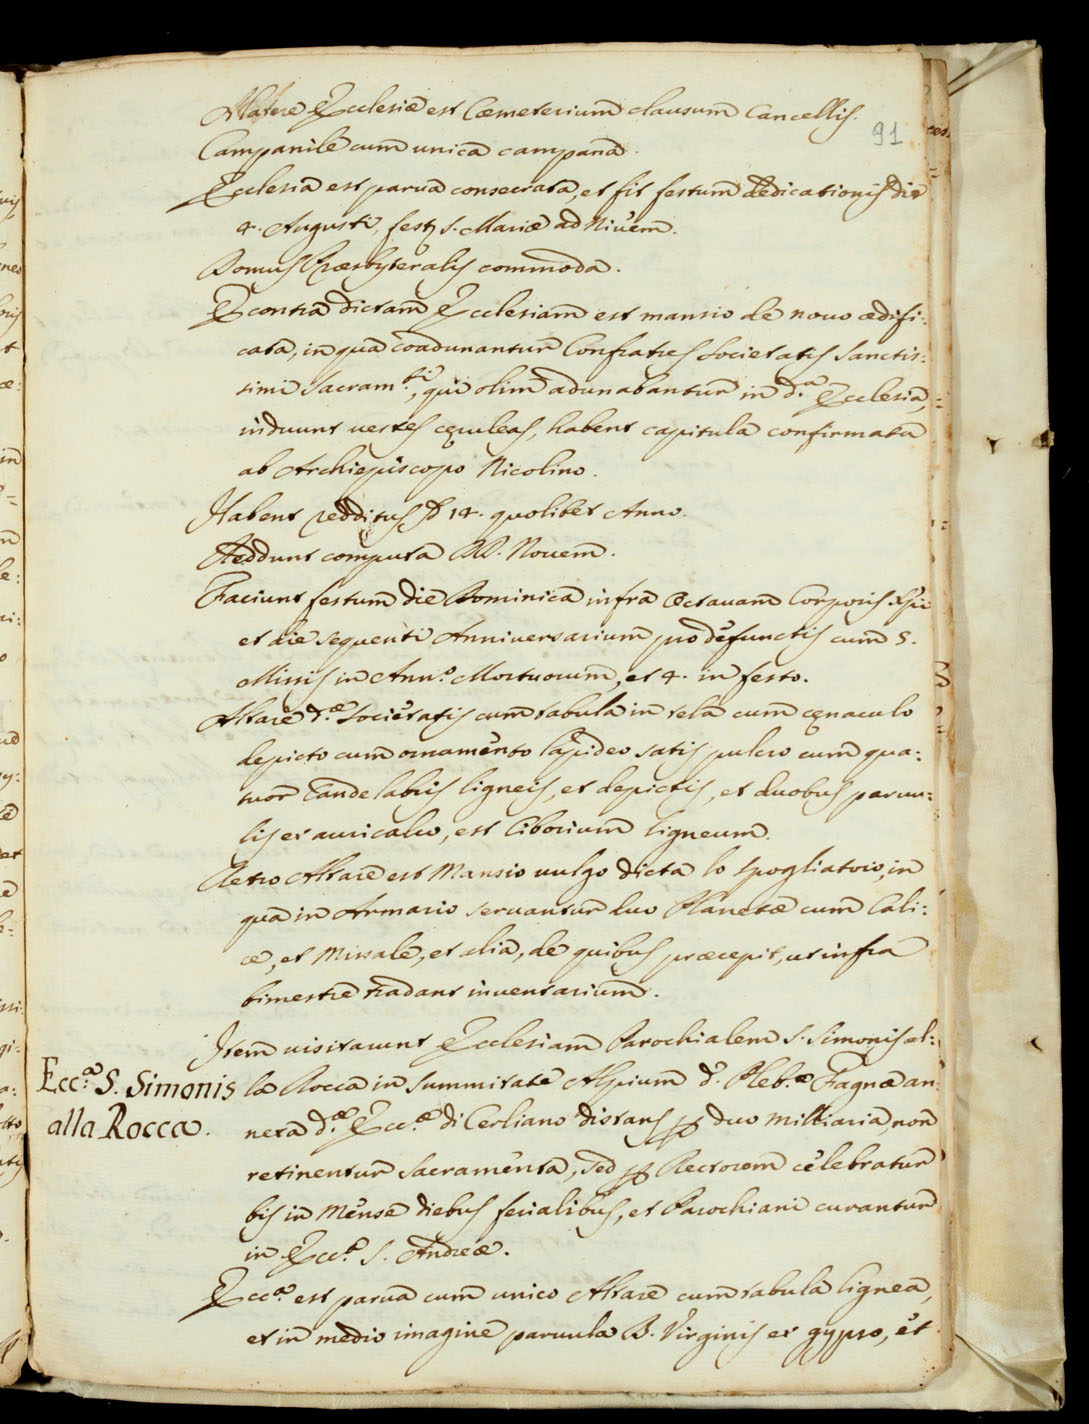 A latere Ecclesiæ est Cæmeterium clausum Cancellis.
91
Campanile cum unica campana.
Ecclesia est parva consecrata, et fit festum dedicationis die
4. Augusti, fest. S. Mariæ ad Nivem.
Domus Præsbyteralis commoda.
E contra dictam Ecclesiam est mansio de novo ædifi:
cata, in qua coadunantur Confratres Societatis Sanctis:
simi Sacram.ti, qui olim adunabantur in d.a Ecclesia,
induunt vestes cęruleas, habent capitula confirmata
ab Archiepiscopo Nicolino.
Habent redditus 14. quolibet Anno.
Reddunt computa Novem.
Faciunt festum die Dominica infra Octavam Corporis Xpi
et die sequenti Anniversarium pro defunctis cum 5.
Missis in Ann.o Mortuorum, et 4. in festo.
Altare d.æ Societatis cum tabula in tela cum cęnaculo
depicto cum ornamento lapideo satis pulcro cum qua:
tuor Candelabris ligneis, et depictis, et duobus parvu:
lis ex auricalco, est Ciborium ligneum.
Retro Altare est Mansio vulgo dicta lo spogliatoio, in
qua in Armario servantur duo Planetæ cum Cali:
ce, et Missale, et alia, de quibus præcepit, ut infra
bimestre tradant inventarium.
Ecc.a S. Simonis
alla Rocca.
Item visitavit Ecclesiam Parochialem S. Simonis al:
la Rocca in Summitate Alpium d. Pleb.æ Fagnæ an:
nexa d.æ Ecc.æ di Cerliano distans p duo milliaria, non
retinentur Sacramenta, sed p Rectorem celebratur
bis in Mense diebus ferialibus, et Parochiani curantur
in Ecc.a S. Andreæ.
Ecc.a est parva cum unico Altare cum tabula lignea,
et in medio imagine parvula B. Virginis ex gypso, et